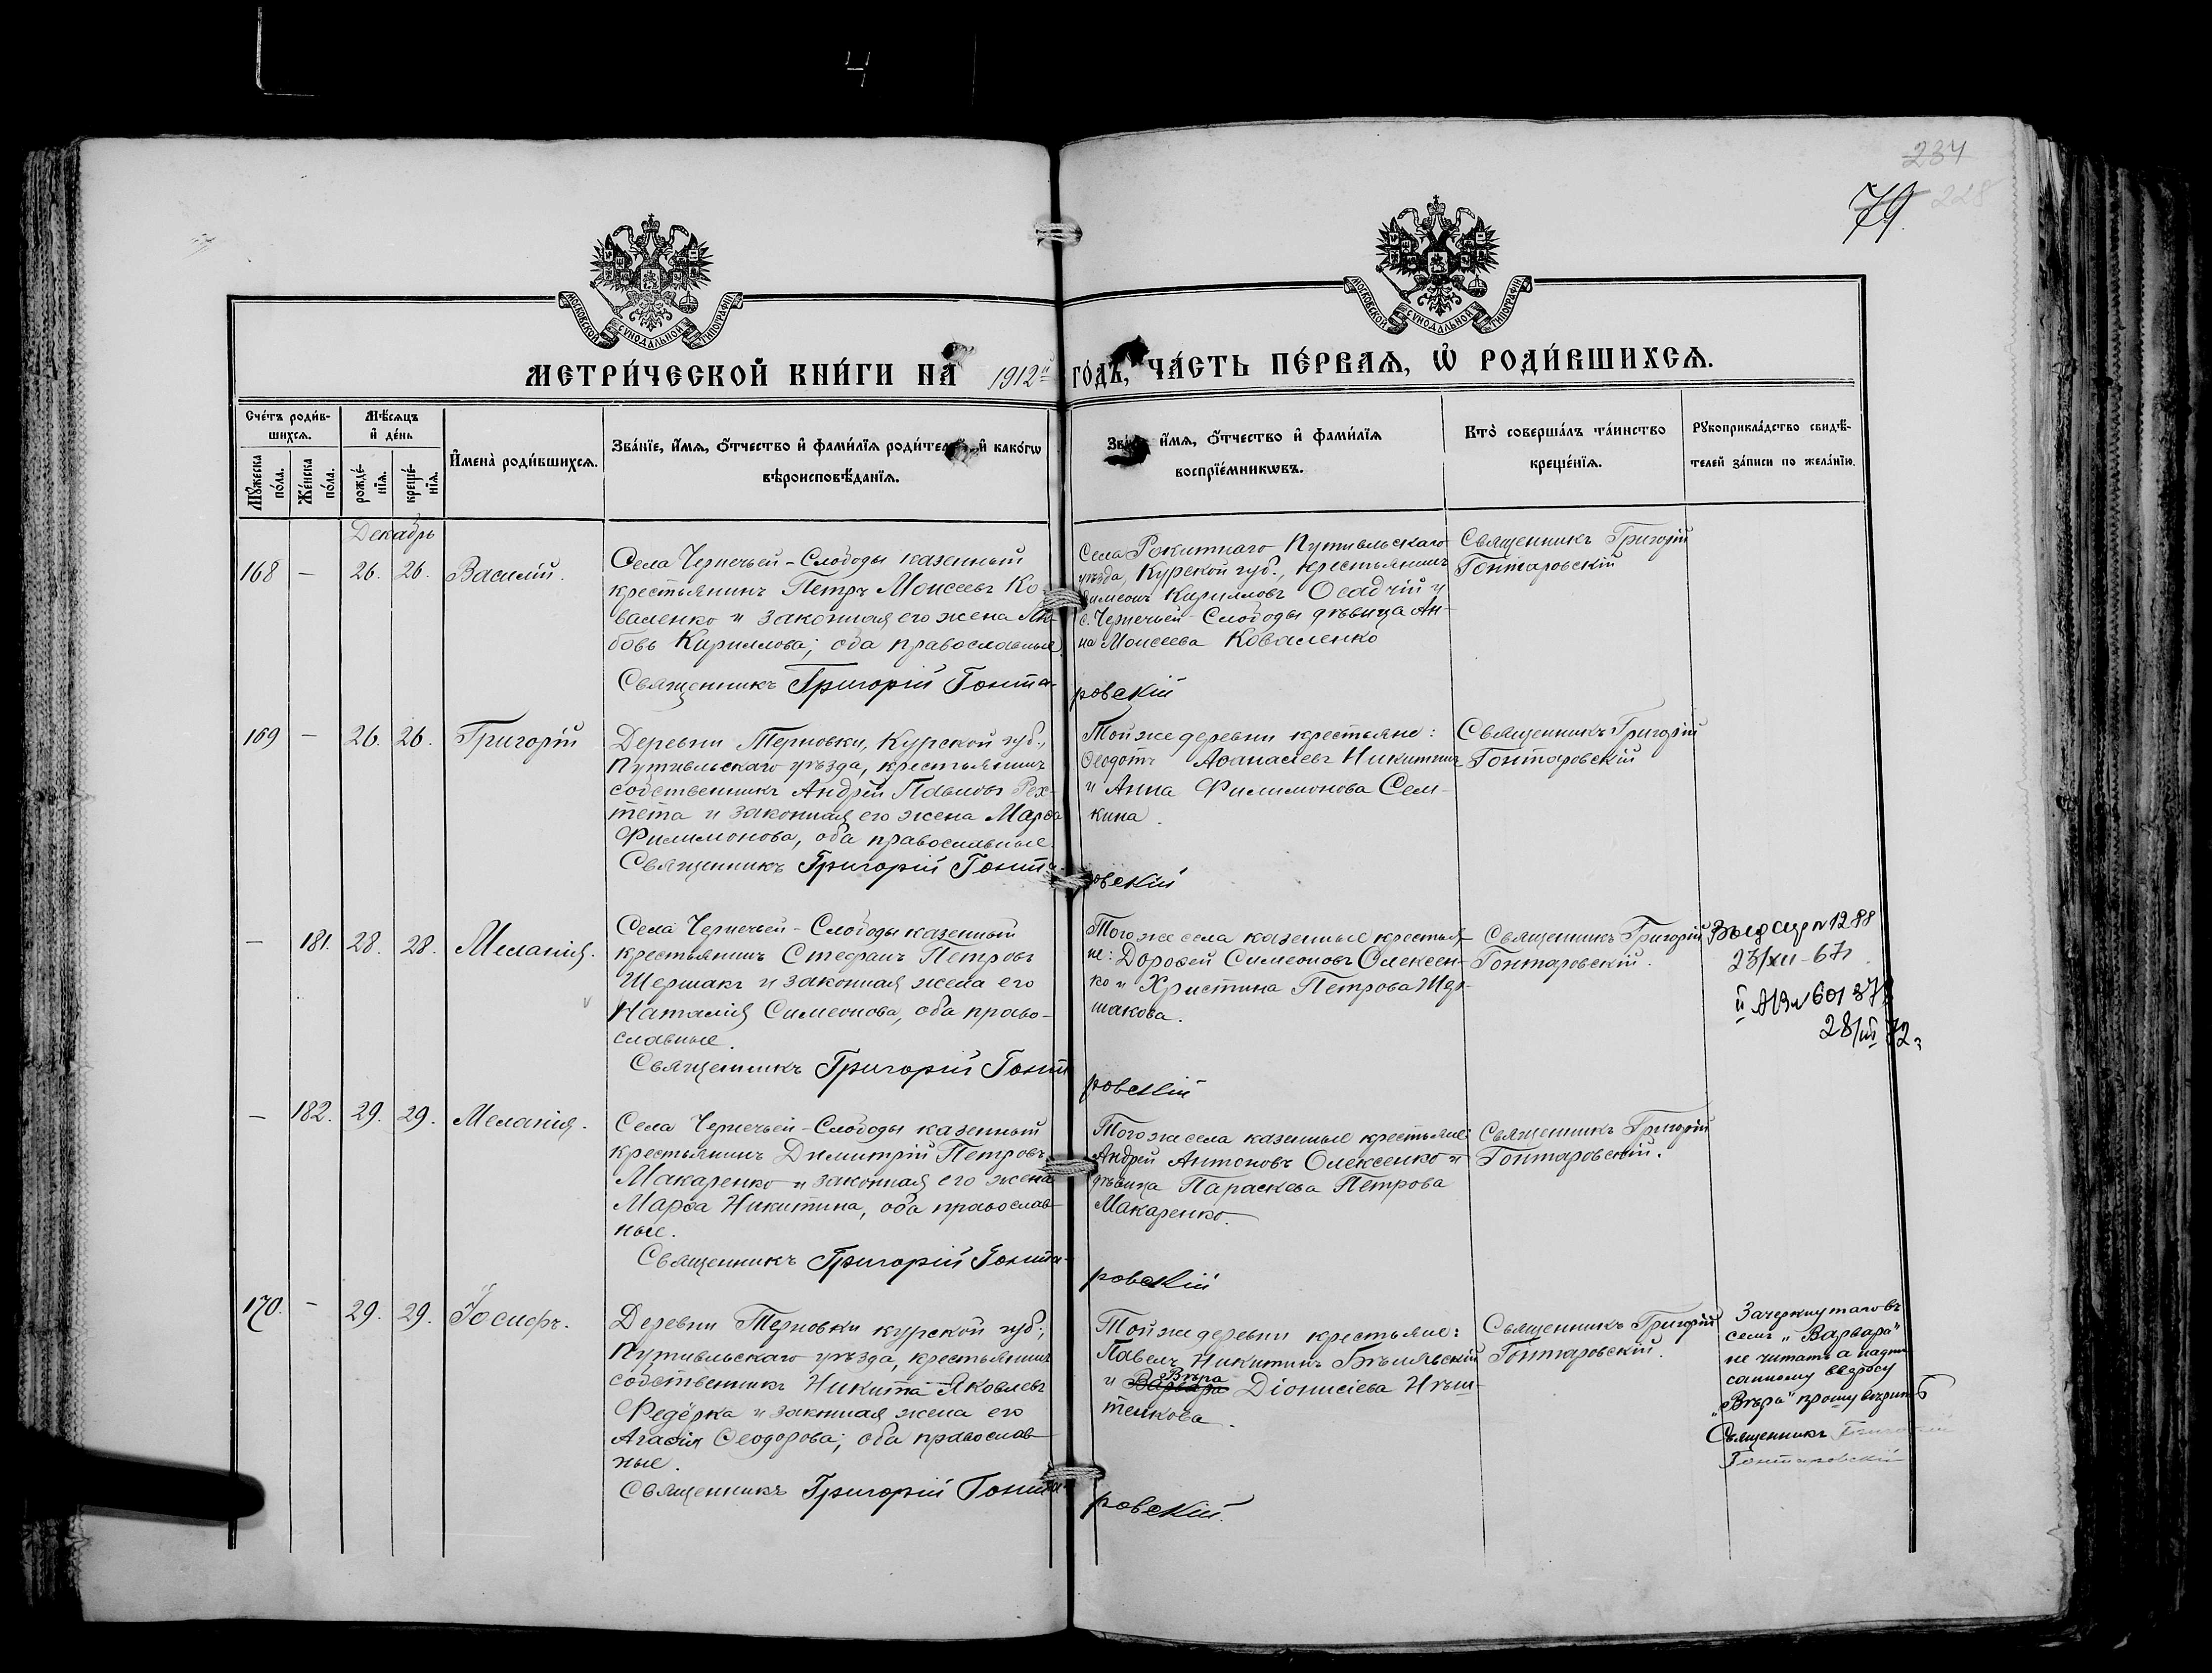 4
234
79
228
МОСКОВСКОЙ СѴНОДАЛЬНОЙ ТИПОГРАФІИ
МОСКОВСКОЙ СѴНОДАЛЬНОЙ ТИПОГРАФІИ
МЕТРИ́ЧЕСКОЙ КНИ́ГИ НА 1912й ГО́ДЪ, ЧА́СТЬ ПЕ́РВАЯ, Ѡ҆ РОДИ́ВШИХСЯ.
Сче́тъ роди́в-
шихся.
Му́жеска по́ла.
Же́нска по́ла.
Мѣ́сяцъ
и҆ де́нь
рожде́-
нїя.
креще́-
нїя.
И҆мена̀ роди́вшихся.
Зва́нїе, и҆́мя, ѻ҆́тчество и҆ фами́лїя роди́телей, и҆ како́гѡ
вѣроисповѣ́данїя.
Зва́нїе, и҆́мя, ѻ҆́тчество и҆ фами́лїя
воспрїе́мникѡвъ.
Кто̀ соверша́лъ та́инство
креще́нїя.
Рꙋкоприкла́дство свидѣ́-
телей за́писи по жела́нїю.
Декабрь
168 — 26. 26. Василій.
Села Чернечьей-Слободы казенный
крестьянинъ Петръ Моисеевъ Ко-
валенко и законная его жена Лю-
бовь Кириллова; оба православные.
Священникъ Григорій Гонта-
ровскій
Села Рокитнаго Путивльскаго
уѣзда, Курской губ., крестьянинъ
Симеонъ Кирилловъ Осадчій и
с. Чернечьей-Слободы дѣвица Ан-
на Моисеева Коваленко
Священникъ Григорій
Гонтаровскій
169 — 26. 26. Григорій
Деревни Терновки, Курской губ.,
Путивльскаго уѣзда, крестьянинъ
собственникъ Андрей Павловъ Рех-
тета и законная его жена Марѳа
Филимонова, оба православные.
Священникъ Григорій Гонта-
ровскій
Той же деревни крестьяне:
Ѳеодотъ Аѳанасіевъ Никитинъ
и Анна Филимонова Сем-
кина.
Священникъ Григорій
Гонтаровскій
— 181. 28. 28. Меланія.
Села Чернечьей-Слободы казенный
крестьянинъ Стефанъ Петровъ
Шершакъ и законная жена его
Наталія Симеонова, оба право-
славные.
Священникъ Григорій Гонта-
ровскій
Того же села казенные крестья-
не: Дороѳей Симеоновъ Олексен-
ко и Христина Петрова Шер-
шакова.
Священникъ Григорій
Гонтаровскій.
N 1288
23/XII-67г
28/III 72г
— 182. 29. 29. Меланія.
Села Чернечьей-Слободы казенный
крестьянинъ Димитрій Петровъ
Макаренко и законная его жена
Марѳа Никитина, оба православ-
ные.
Священникъ Григорій Гонта-
ровскій
Того же села казенные крестьяне:
Андрей Антоновъ Олексенко и
дѣвица Параскева Петрова
Макаренко.
Священникъ Григорій
Гонтаровскій.
170. — 29. 29. Іосифъ.
Деревни Терновки курской губ.,
Путивльскаго уѣзда, крестьянинъ
собственникъ Никита Яковлевъ
Федёрка и законная жена его
Агаѳія Ѳеодорова; оба православ-
ные.
Священникъ Григорій Гонта-
ровскій.
Той же деревни крестьяне:
Павелъ Никитинъ
и Варвара Вѣра Діонисіева
Священникъ Григорій
Гонтаровскій.
Зачеркнутаго въ
семъ „Варвара"
не читать а надпи-
санному сверху
„Вѣра" прошу вѣрить
Священникъ Григорій
Гонтаровскій